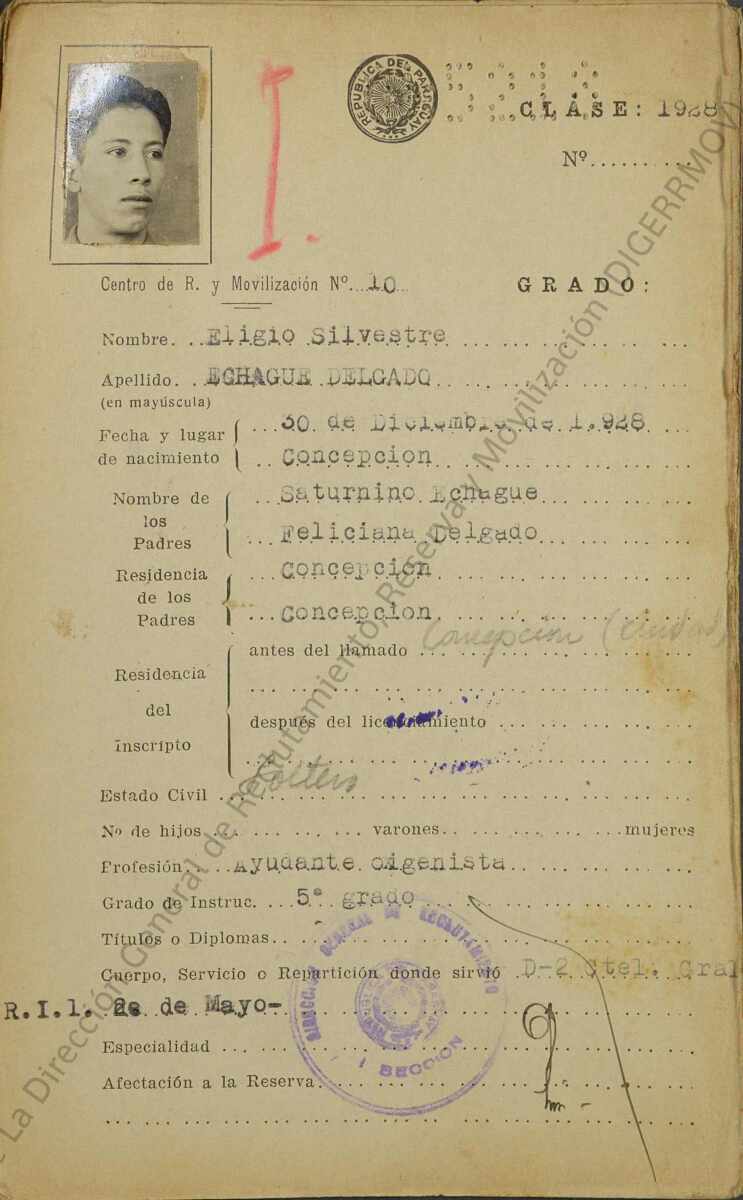 REPUBLICA DEL PARAGUAY
CLASE: 1928
Nº..........
I.
Centro de R. y Movilización Nº. 10
GRADO:
Nombre. Eligio Silvestre
Apellido. ECHAGUE DELGADO
(en mayúscula)
Fecha y lugar de nacimiento
30 de Diciembre de 1.928
Concepcion
Nombre de los Padres
Saturnino Echague
Feliciana Delgado
Residencia de los Padres
Concepción
Concepcion
Residencia del inscripto
antes del llamado Concepción (Ciudad)
después del licenciamiento
Estado Civil Soltero
Nº de hijos varones mujeres
Profesión. Ayudante
Grado de Instruc. 5º grado
Títulos o Diplomas
Cuerpo, Servicio o Repartición donde sirvió D-2 Ctel. Gral
R.I.1. 2 de Mayo-
Especialidad
Afectación a la Reserva
DIRECCION GENERAL DE RECLUTAMIENTO
I SECCION
La Dirección General de Reclutamiento, Reserva y Movilización (DIGERRMOV